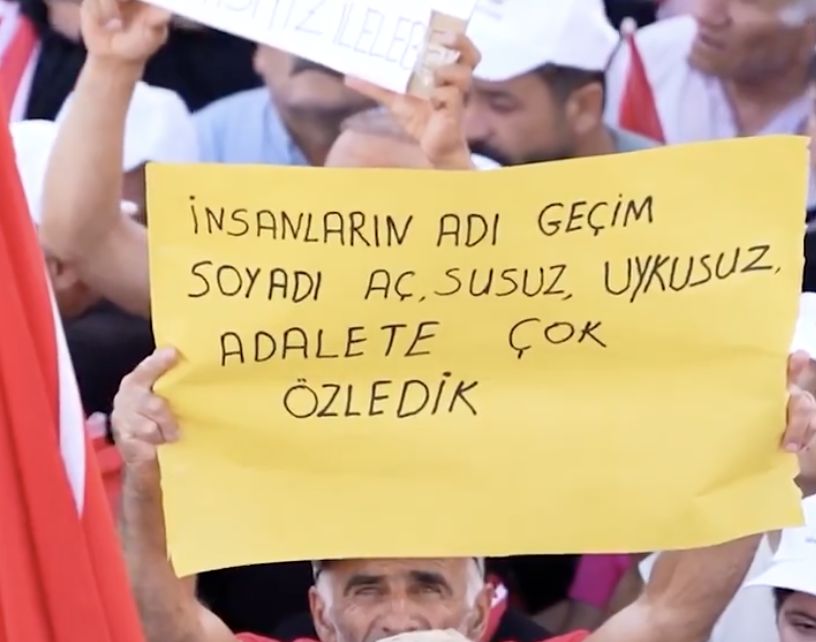 İNSANLARIN ADI GEÇİM
SOYADI AÇ, SUSUZ, UYKUSUZ,
ADALETE ÇOK
ÖZLEDİK